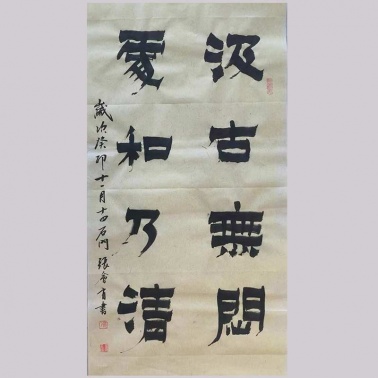 汲古無悶
處和乃清
歲次癸卯十一月十四石門張
書